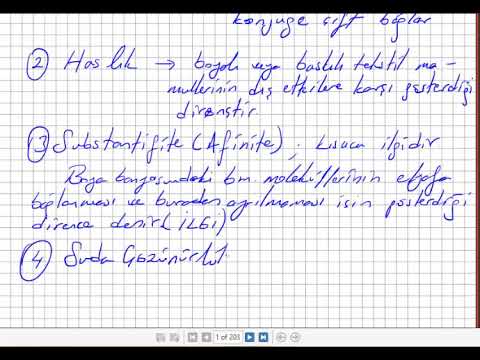 konjuge çift bağlar
2 Haslık → boyalı veya baskılı tekstil ma-
mullerinin dış etkilere karşı gösterdiği
dirençtir
3 Substantifite (Afinite) ; kısaca ilgidir
Boya banyosundaki bm. moleküllerinin elyafa
bağlanması ve buradan ayrılmaması için gösterdiği
dirence denir (İLGİ)
4 Suda Çözünürlük
1 of 203